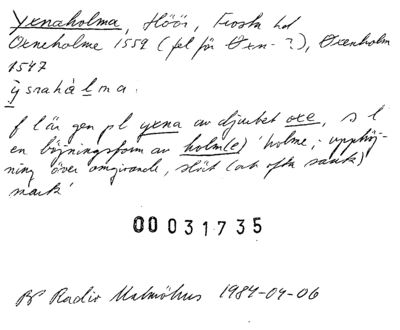 Yxnaholma, Höör, Frosta hd
Oxneholme 1559 (fel för Öxn-?), Öxenholm
1547
ỳsnahàlma.
f l är gen pl yxna av djurbet oxe, s l
en böjningsform av holm(e) 'holme; upphöj-
ning över omgivande, slät (ock ofta sank)
mark'
00031735
BP Radio Malmöhus 1984-04-06